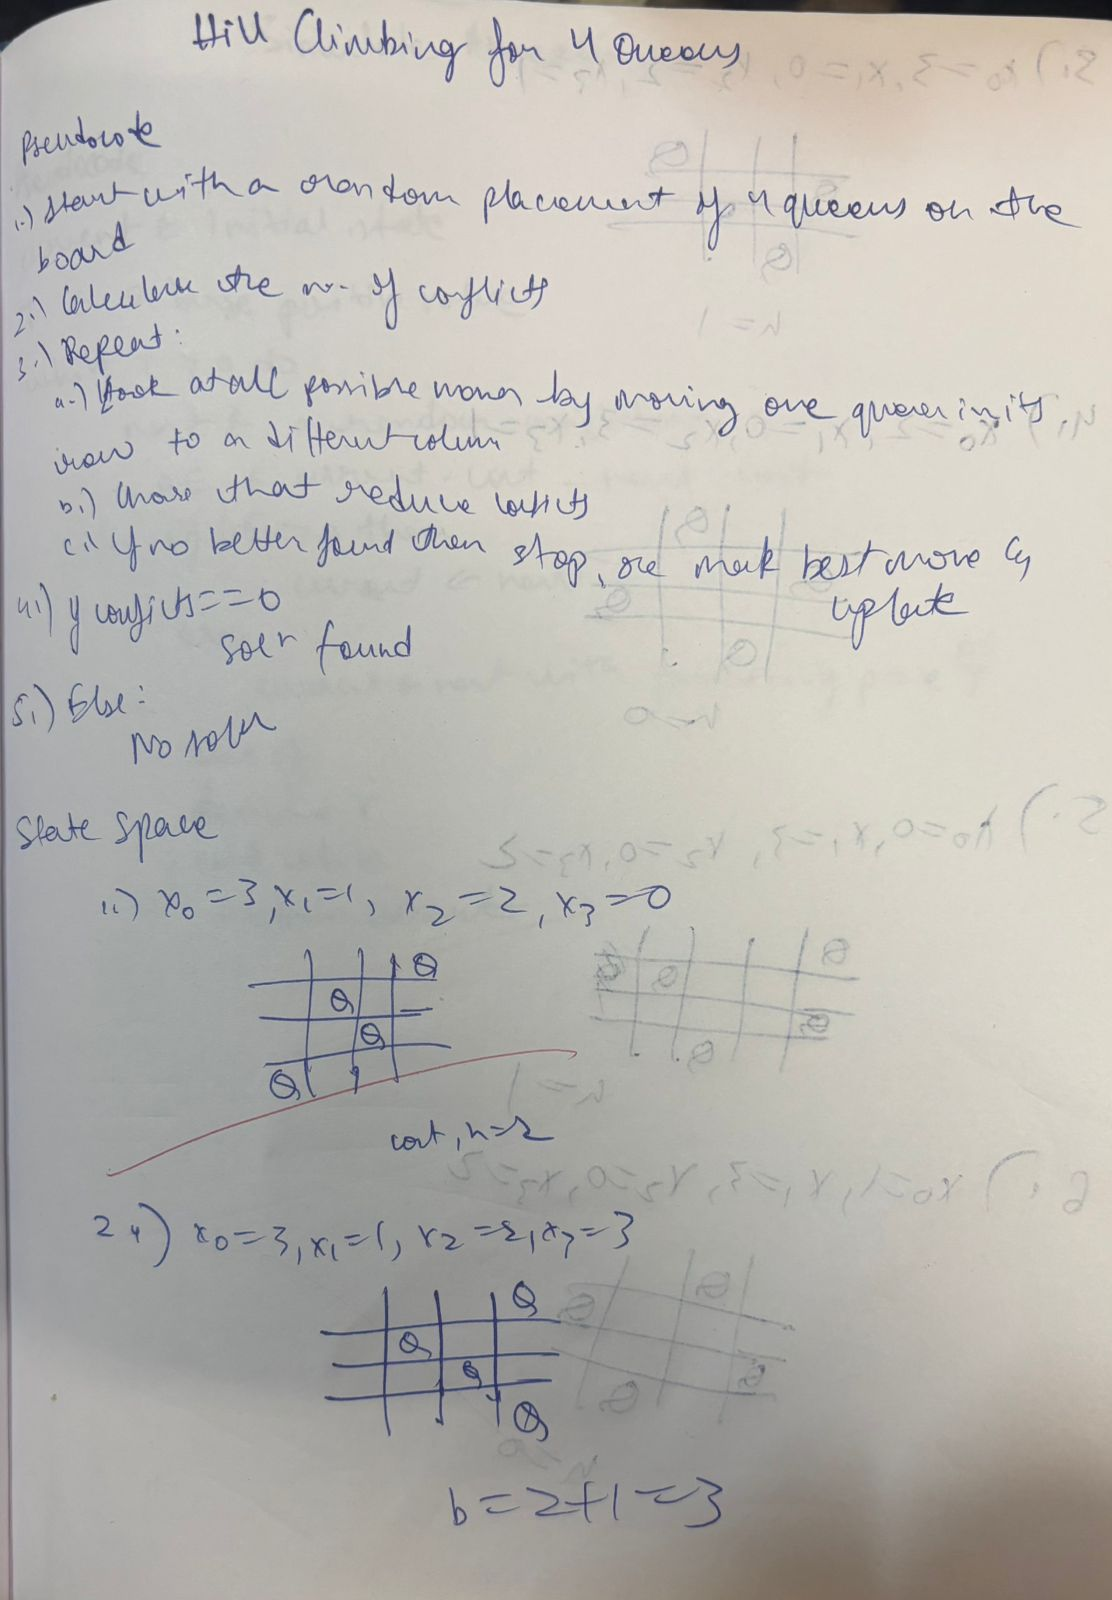 Hill Climbing for 4 Queens
Pseudocode
1.) Start with a random placement of 4 queens on the
board
2.) Calculate the no. of conflicts
3.) Repeat:
a.) Look at all possible moves by moving one queen in its
row to a different column
b.) Chose that reduce conflicts
c.) If no better found then stop, else mark best move &
update
4.) If conflicts==0
Soln found
5.) Else:
No soln
State Space
1.) x0=3, x1=1, x2=2, x3=0
Q
Q
Q
Q
cost, h=2
2.) x0=3, x1=1, x2=2, x3=3
Q
Q
Q
Q
h=2+1=3